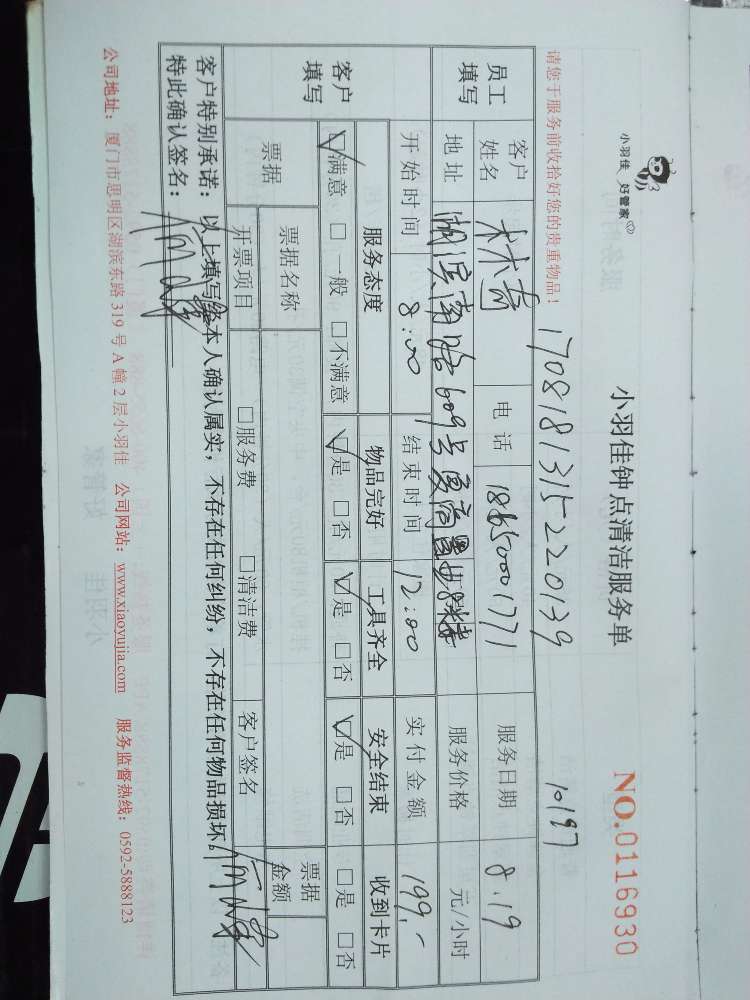 小羽佳 好管家
小羽佳钟点清洁服务单
NO.0116930
请您于服务前收拾好您的贵重物品！
170818131522 0139
10197
员工填写
客户姓名
电话 18650001771
服务日期 8.19
地址 湖滨南路609号
服务价格 元/小时
开始时间 8:00
结束时间 12:00
实付金额 199.-
客户填写
服务态度 物品完好 工具齐全 安全结束 收到卡片
☑满意 □一般 □不满意 ☑是 □否 ☑是 □否 ☑是 □否 □是 □否
票据
票据名称
票据金额
开票项目 □服务费 □清洁费 客户签名
客户特别承诺：以上填写经本人确认属实，不存在任何纠纷，不存在任何物品损坏，
特此确认签名：
公司地址：厦门市思明区湖滨东路 319 号 A 幢 2 层小羽佳 公司网站：www.xiaoyujia.com 服务监督热线：0592-5888123